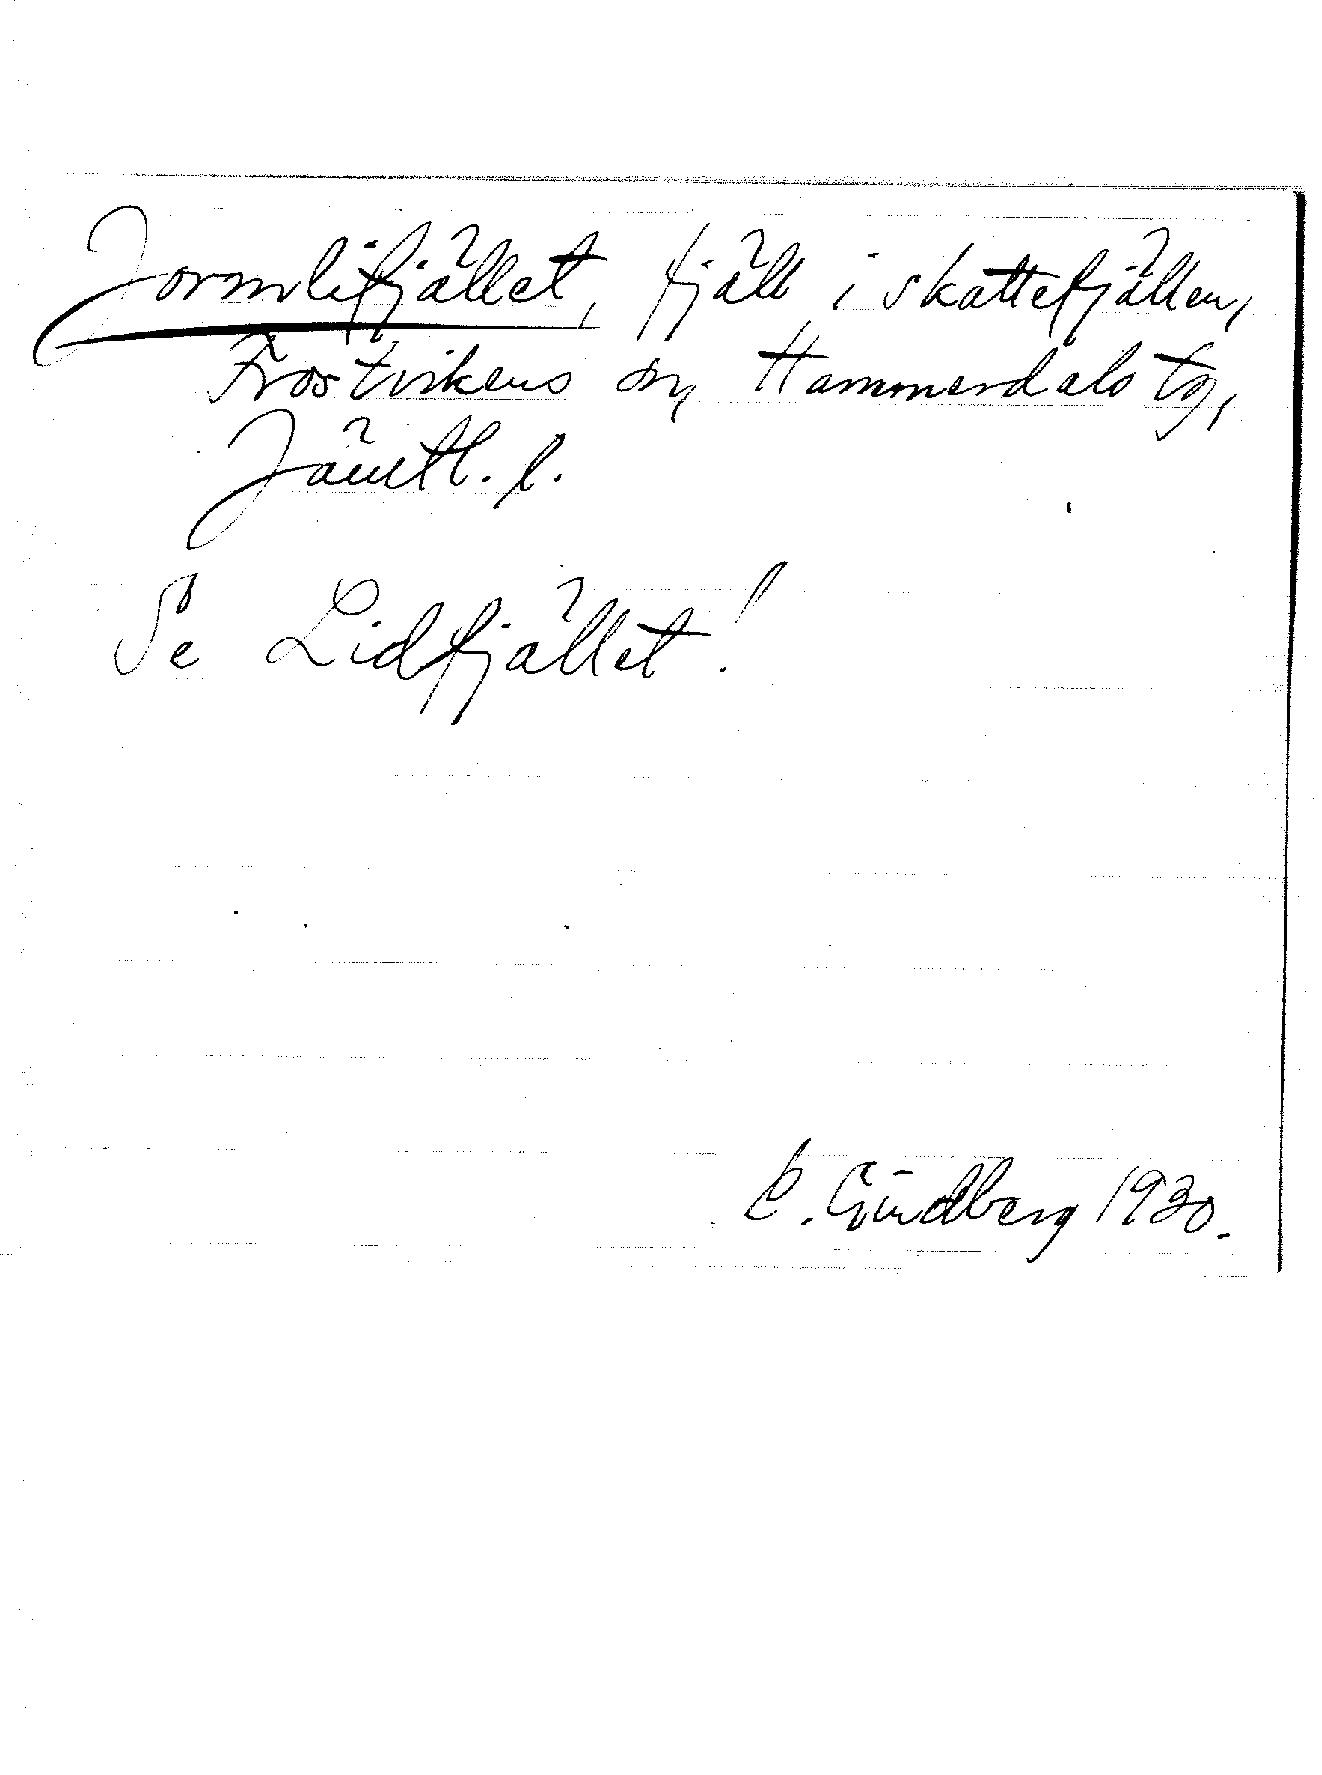 Jormlifjället, fjäll i skattefjällen,
Frostvikens sn, Hammerdals tg,
Jämtl. l.
Se Lidfjället!
E. Grundberg 1930.